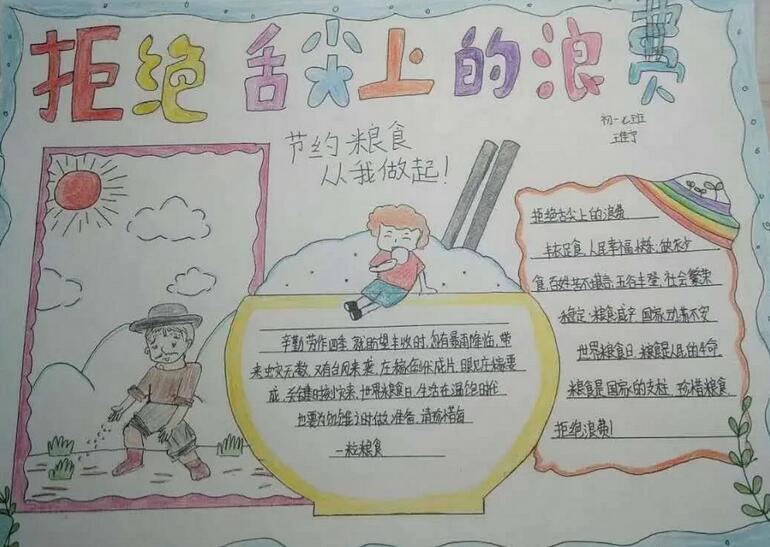 拒绝舌尖上的浪费
节约粮食
从我做起！
初一七班
辛勤劳作四季,就盼望丰收时,忽有暴雨降临,带
来虫灾无数,又有台风来袭,庄稼倒伏成片,眼见庄稼要
成,关键时接灾来,世界粮食日,生活在温饱时代
也要为饥饿时做准备,请珍惜每
一粒粮食
拒绝舌尖上的浪费
丰衣足食,人民幸福快乐,缺衣少
食,百姓苦不堪言,五谷丰登,社会繁荣
稳定,粮食减产,国家动荡不安
世界粮食日,粮食是人民的生命,
粮食是国家的支柱,珍惜粮食
拒绝浪费!